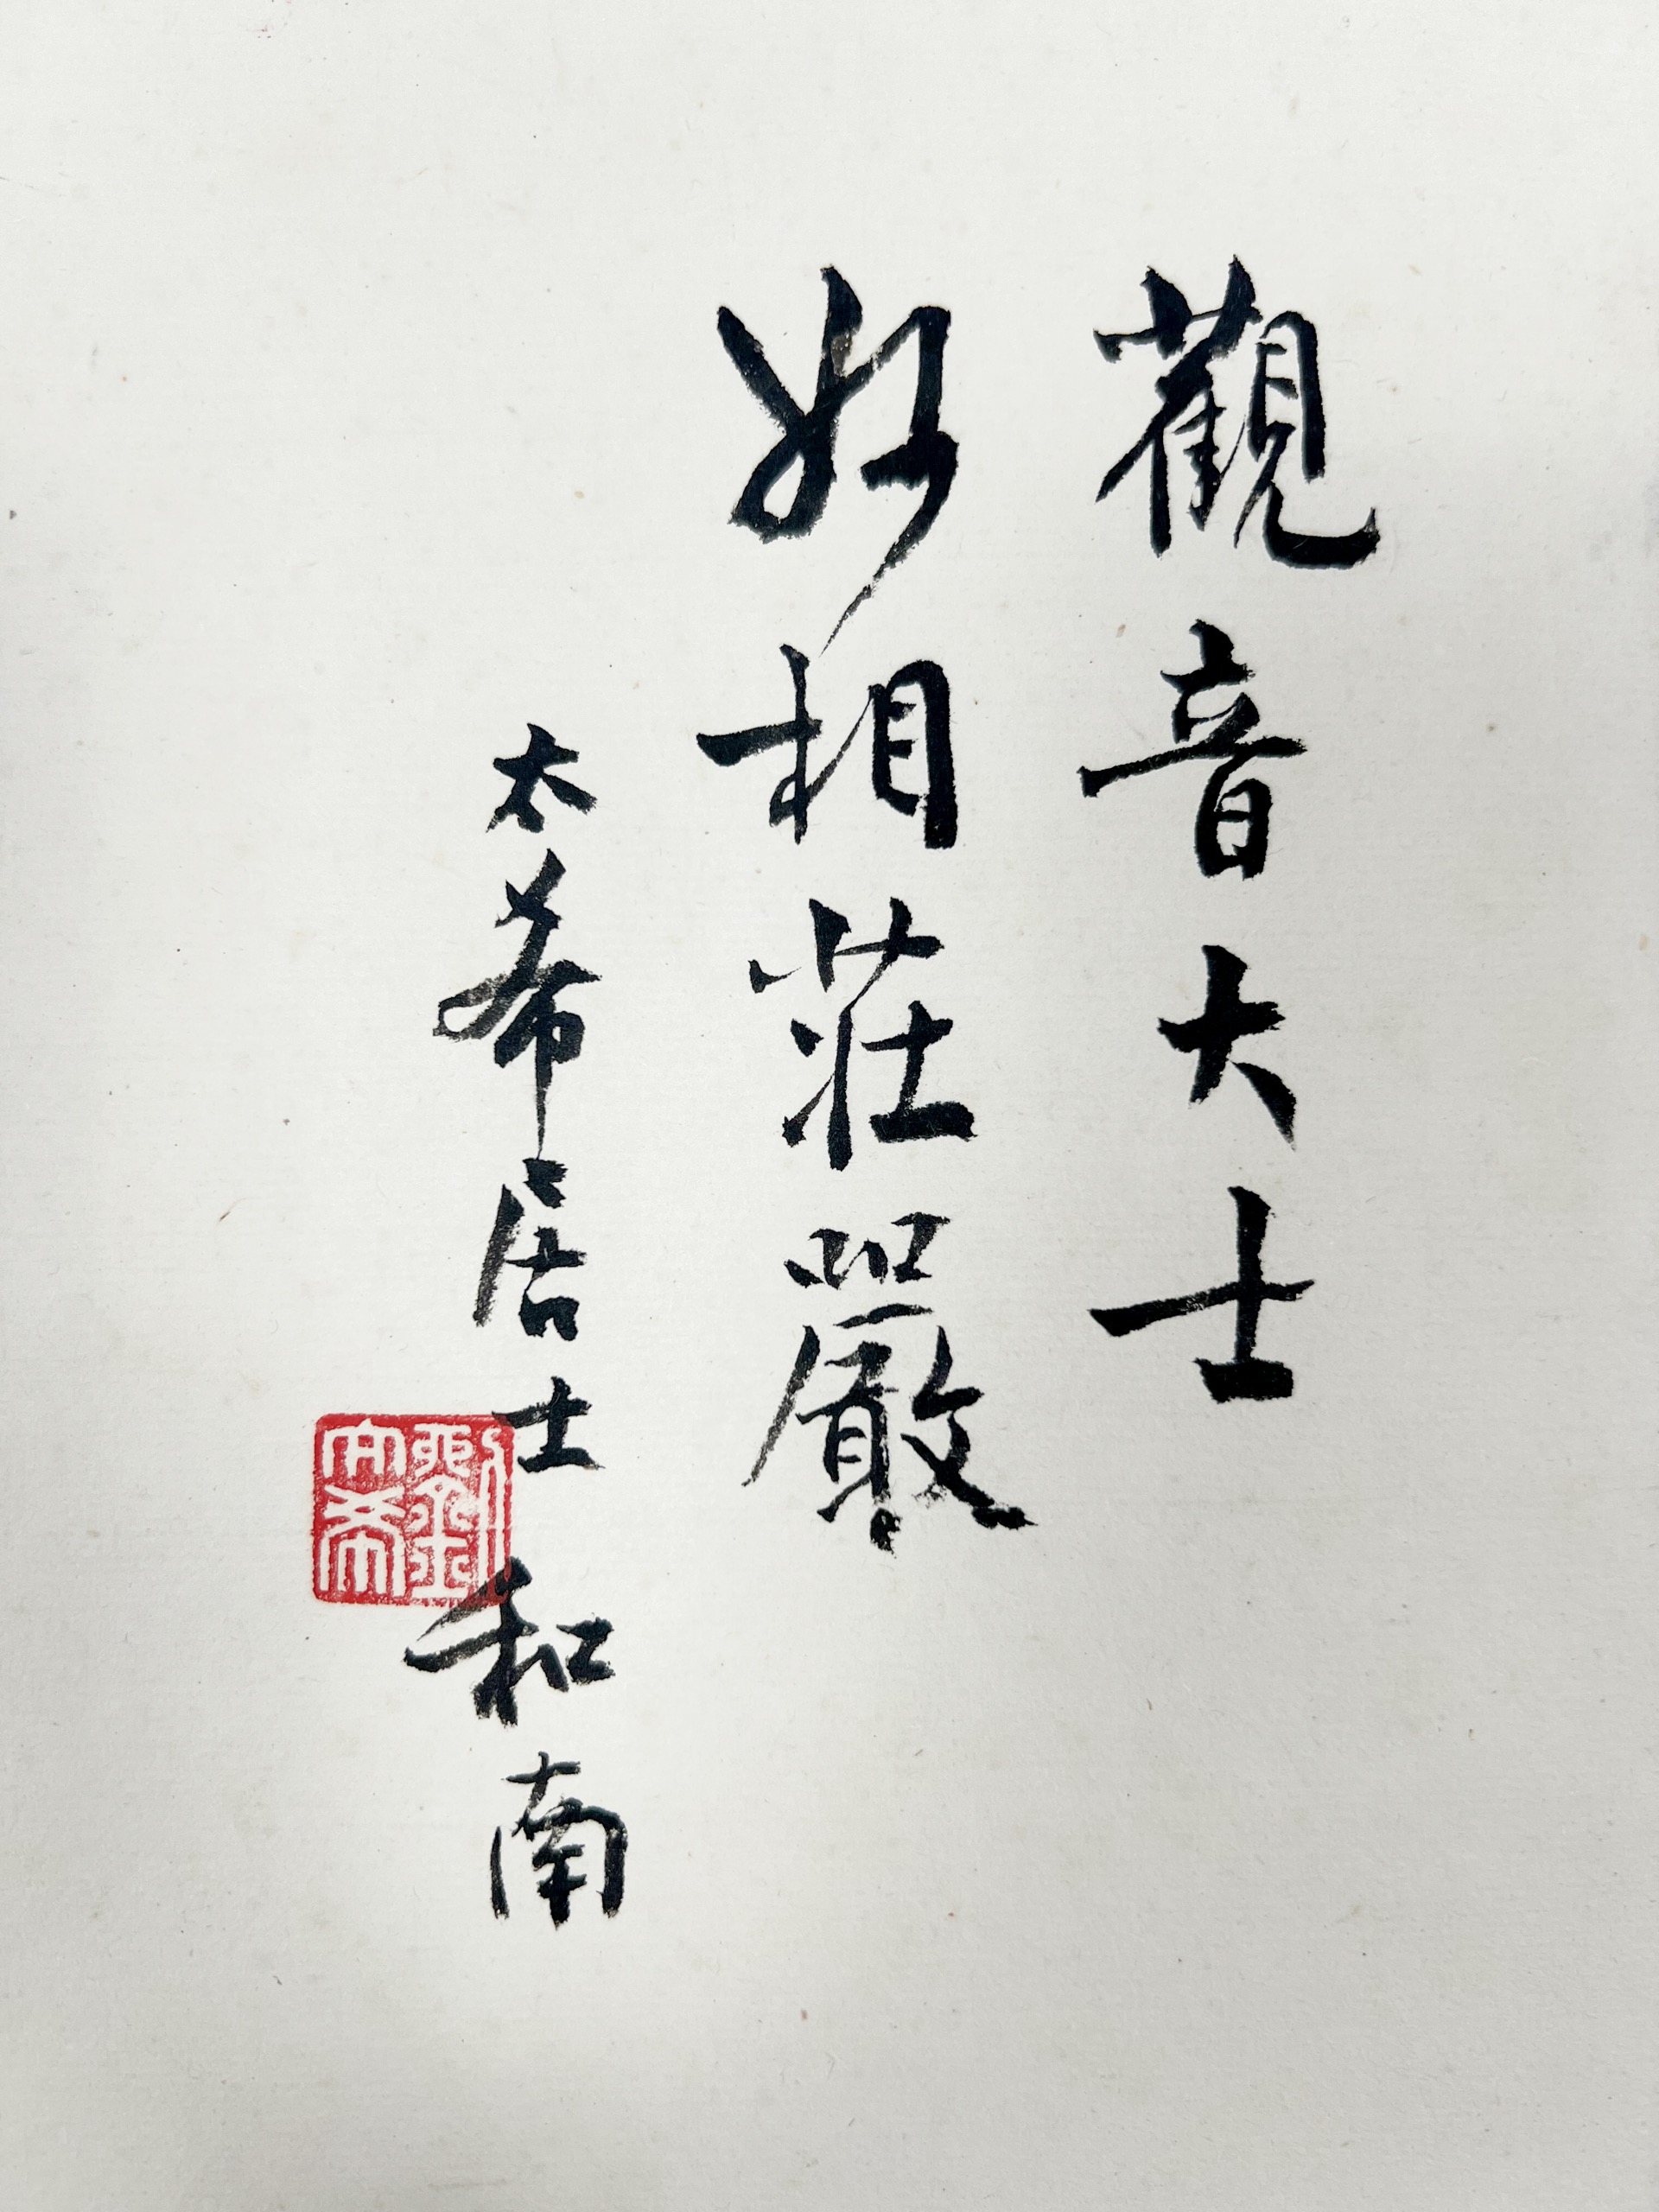 觀音大士
好相莊嚴
太希居士和南
劉太希